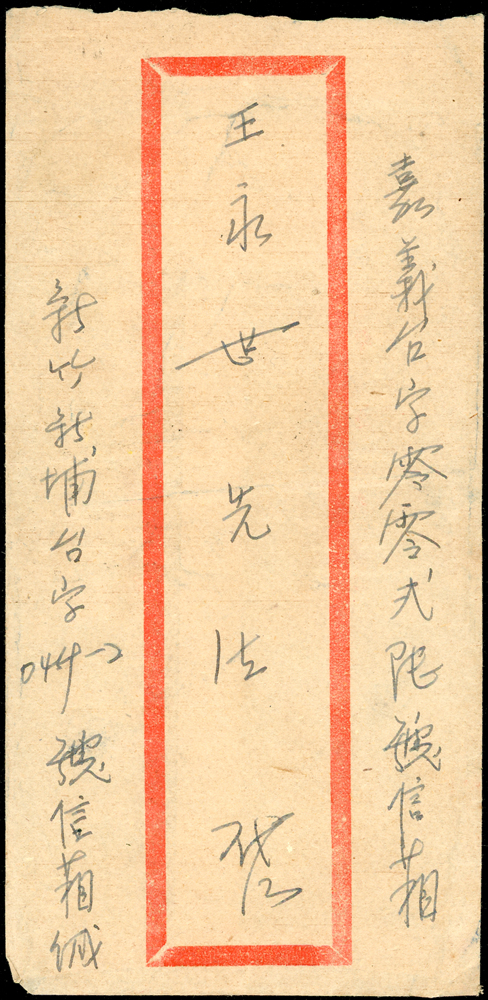 嘉義台字零零弍附號信箱
王永世先法啓
新竹新埔台字044-2號信箱缄